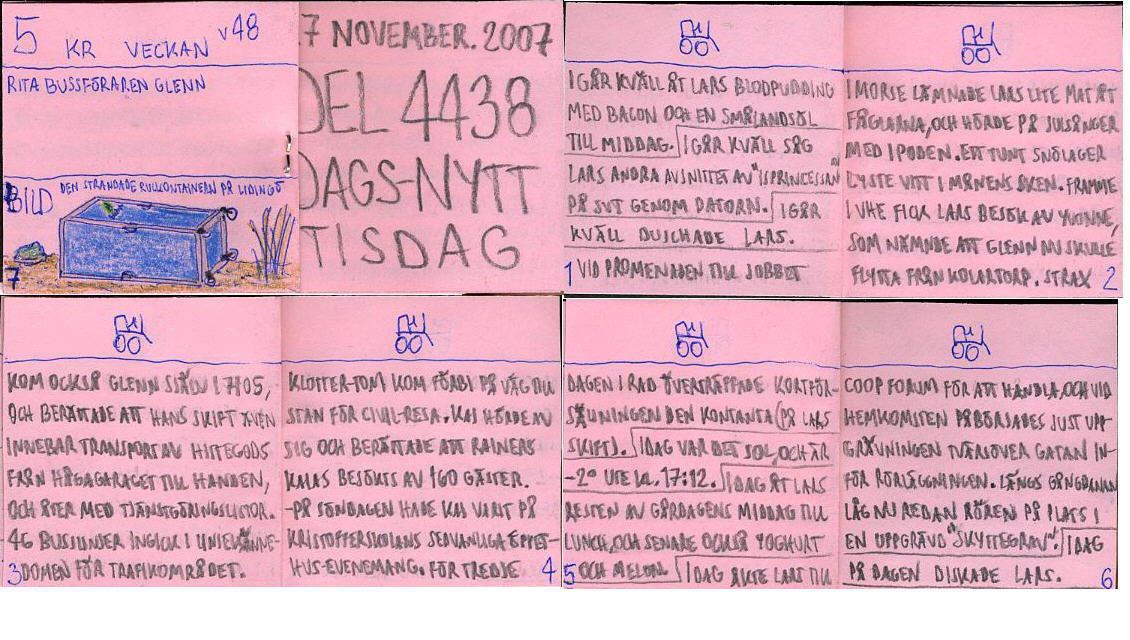 5 KR VECKAN v48
RITA BUSSFÖRAREN GLENN
BILD DEN STRANDADE RULLCONTAINERN PÅ LIDINGÖ
7
7 NOVEMBER. 2007
DEL 4438
DAGS-NYTT
TISDAG
IGÅR KVÄLL ÅT LARS BLODPUDDING
MED BACON OCH EN SMÅLANDSÖL
TILL MIDDAG. IGÅR KVÄLL SÅG
LARS ANDRA AVSNITTET AV "ISPRINSESSAN"
PÅ SVT GENOM DATORN. IGÅR
KVÄLL DUSCHADE LARS.
1 VID PROMENADEN TILL JOBBET
I MORSE LÄMNADE LARS LITE MAT ÅT
FÅGLARNA, OCH HÖRDE PÅ JULSÅNGER
MED IPODEN. ETT TUNT SNÖLAGER
LYSTE VITT I MÅNENS SKEN. FRAMME
I VHE FICK LARS BESÖK AV YVONNE,
SOM NÄMNDE ATT GLENN NU SKULLE
FLYTTA FRÅN KOLARTORP. STRAX 2
KOM OCKSÅ GLENN SJÄLV I 7105,
OCH BERÄTTADE ATT HANS SKIFT ÄVEN
INNEBAR TRANSPORT AV HITTEGODS
FRÅN HÅGAGARAGET TILL HANDEN,
OCH ÅTER MED TJÄNSTGÖRINGSLISTOR.
46 BUSSUNDER INGICK I
3 DOMEN FÖR TRAFIKOMRÅDET.
KLOTTER-TOM KOM FÖRBI PÅ VÄG TILL
STAN FÖR CIVIL-RESA. KAJ HÖRDE AV
SIG OCH BERÄTTADE ATT RAINERS
KALAS BESÖKTS AV 160 GÄSTER.
-PÅ SÖNDAGEN HADE KAJ VARIT PÅ
KRISTOFFERSKOLANS SEDVANLIGA ÖPPET-
HUS-EVENEMANG. FÖR TREDJE 4
DAGEN I RAD ÖVERTRÄFFADE KORTFÖR-
SÄLJNINGEN DEN KONTANTA (PÅ LARS
SKIFT). IDAG VAR DET SOL, OCH ÄR
-2° UTE kl. 17:12. IDAG ÅT LARS
RESTEN AV GÅRDAGENS MIDDAG TILL
LUNCH, OCH SENARE OCKSÅ YOGHURT
5 OCH MELON. IDAG ÅKTE LARS TILL
COOP FORUM FÖR ATT HANDLA, OCH VID
HEMKOMSTEN PÅBÖRJADES JUST UPP-
GRÄVNINGEN TVÄRSÖVER GATAN IN-
FÖR RÖRLÄGGNINGEN. LÄNGS GÅNGBANAN
LÅG NU REDAN RÖREN PÅ PLATS I
EN UPPGRÄVD "SKYTTEGRAV". IDAG
PÅ DAGEN DISKADE LARS. 6